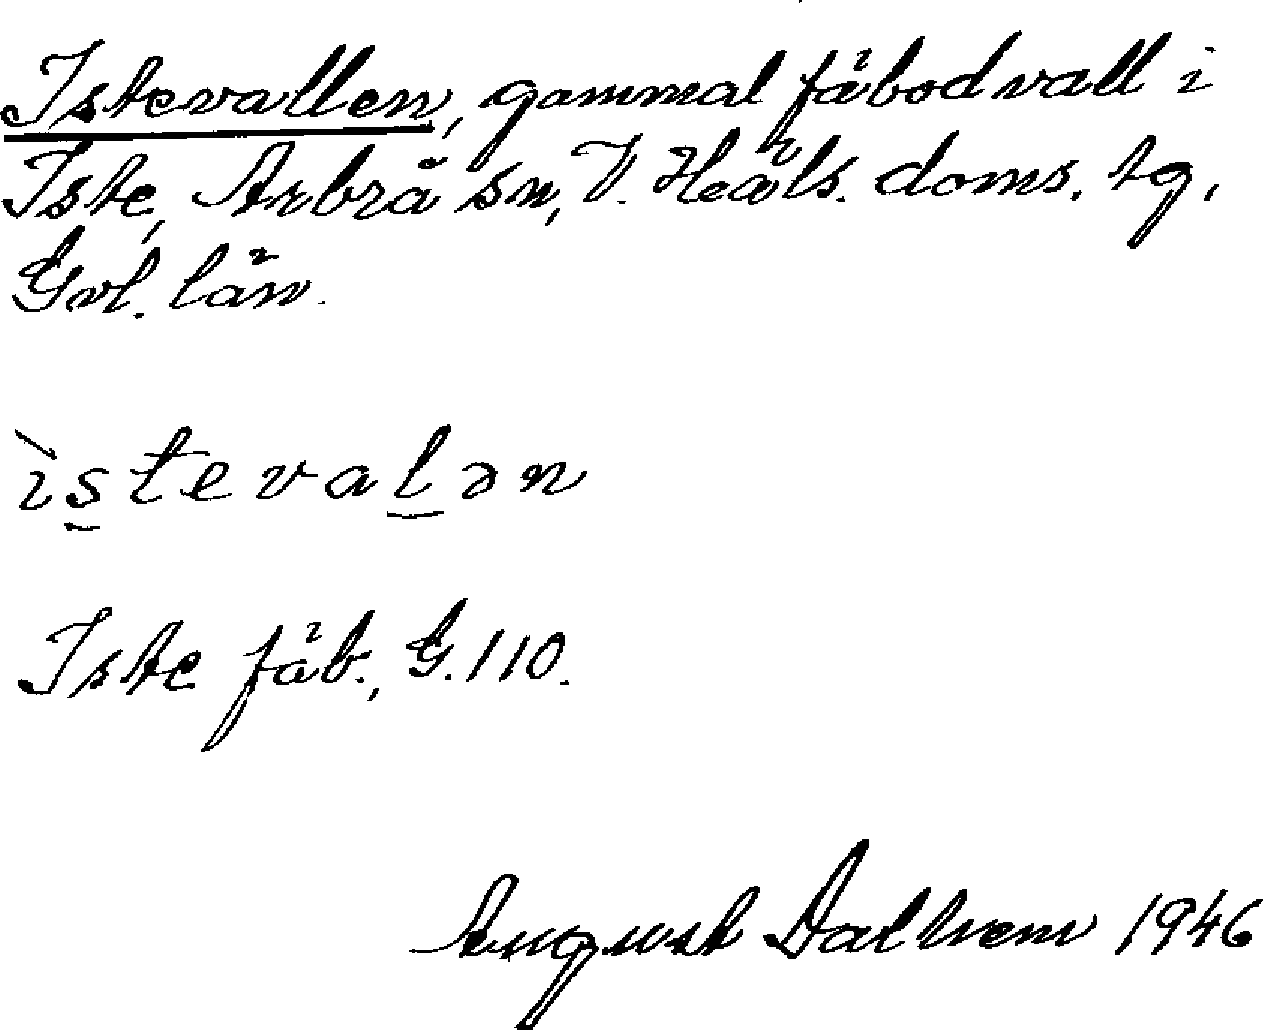 Istevallen, gammal fäbodvall i
Iste, Arbrå sn, V. Häls. doms. tg,
Gvl. län.
ìstevalən
Iste fäb., G. 110.
August Dalhem 1946